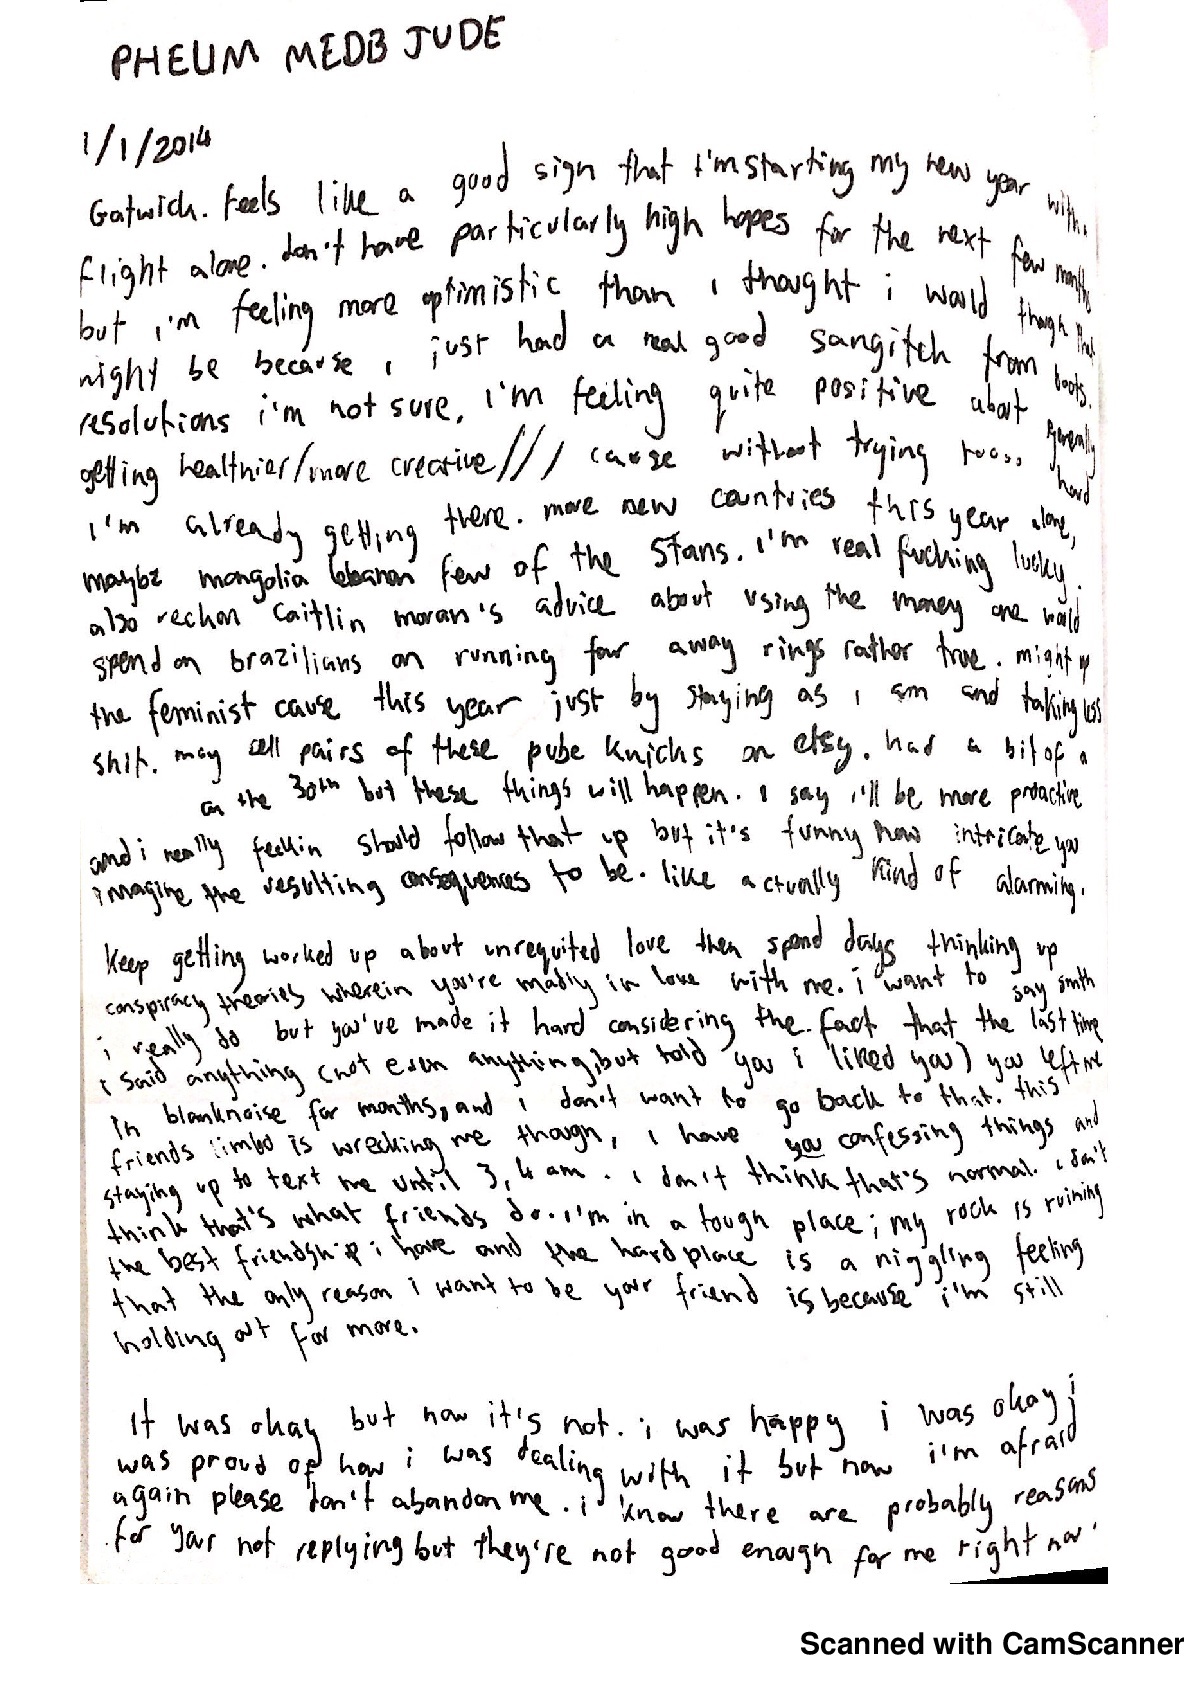 PHEUM MEDB JUDE
1/1/2014
Gatwick. feels like a good sign that I'm starting my new year with a
flight alone. don't have particularly high hopes for the next few months
but i'm feeling more optimistic than i thought i would though that
might be because i just had a real good sangitch from boots.
resolutions i'm not sure, i'm feeling quite positive about generally
getting healthier/more creative/// cause without trying tooo hard
i'm already getting there. more new countries this year alone,
maybe mongolia lebanon few of the stans. i'm real fucking lucky.
also reckon caitlin moran's advice about using the money one would
spend on brazilians on running far away rings rather true. might up
the feminist cause this year just by staying as i am and taking less
shit. may sell pairs of these pube knicks on etsy. had a bit of a
on the 30th but these things will happen. i say i'll be more proactive
and i really feckin should follow that up but it's funny how intricate you
imagine the resulting consequences to be. like actually kind of alarming.
Keep getting worked up about unrequited love then spend days thinking up
conspiracy theories wherein you're madly in love with me. i want to say smth
i really do but you've made it hard considering the fact that the last time
i said anything (not even anything, but told you i liked you) you left me
in blanknoise for months, and i don't want to go back to that. this
friends limbo is wrecking me though, i have you confessing things and
staying up to text me until 3, 4 am. i don't think that's normal. i don't
think that's what friends do. i'm in a tough place; my rock is ruining
the best friendship i have and the hard place is a niggling feeling
that the only reason i want to be your friend is because i'm still
holding out for more.
It was okay but now it's not. i was happy i was okay i
was proud of how i was dealing with it but now i'm afraid
again please don't abandon me. i know there are probably reasons
for your not replying but they're not good enough for me right now.
Scanned with CamScanner